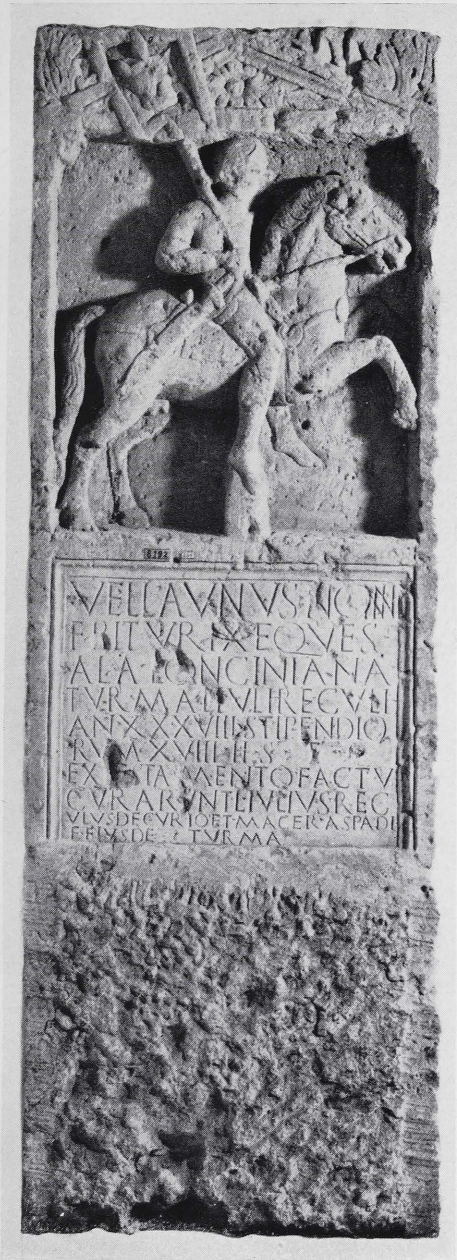 VELLAVNVS·NONN
F·BITVRIX·EQVES
ALA LONGINIANA
TVRMA L·IVLI·REGVLI
AN·XXXVIII·STIPENDIO
RVM·XVIII·H·S·E
EX·TESTAMENTO FACTV
CVRARVNT L·IVLIVS REG
VLVS DECVRIO ET MACER·ASPADI
F·EIVSDE TVRMA